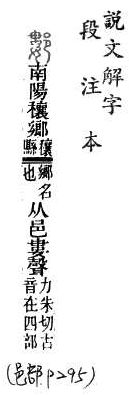 說文解字
段注本
南陽穰鄉 穰縣鄉名也 从邑婁聲 力朱切古音在四部
(邑部 p295)